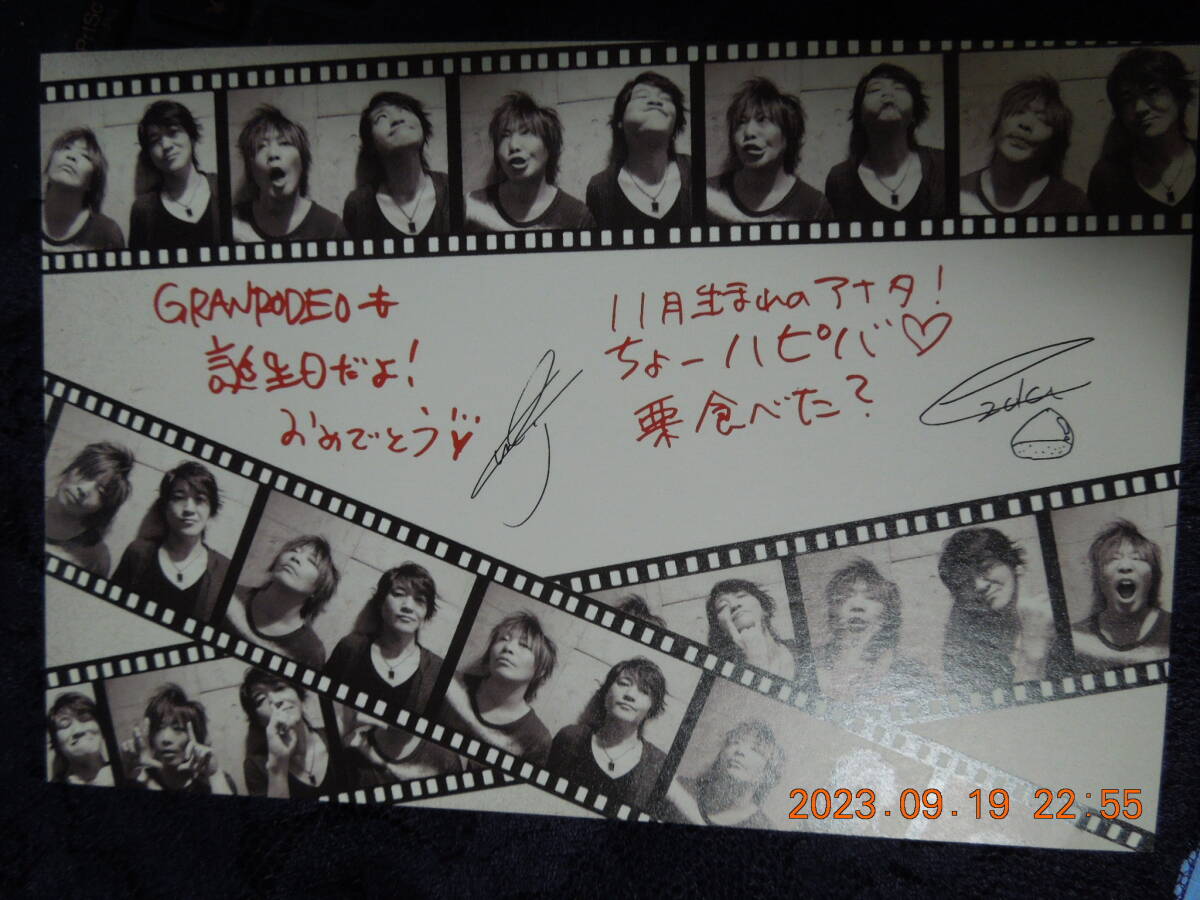 GRANRODEOも
誕生日だよ!
おめでとう
11月生まれのアナタ!
ちょーハピバ♡
栗食べた?
2023.09.19 22:55